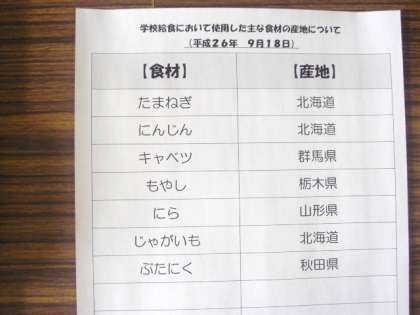 学校給食において使用した主な食材の産地について
（平成26年 9月18日）
【食材】 【産地】
たまねぎ 北海道
にんじん 北海道
キャベツ 群馬県
もやし 栃木県
にら 山形県
じゃがいも 北海道
ぶたにく 秋田県